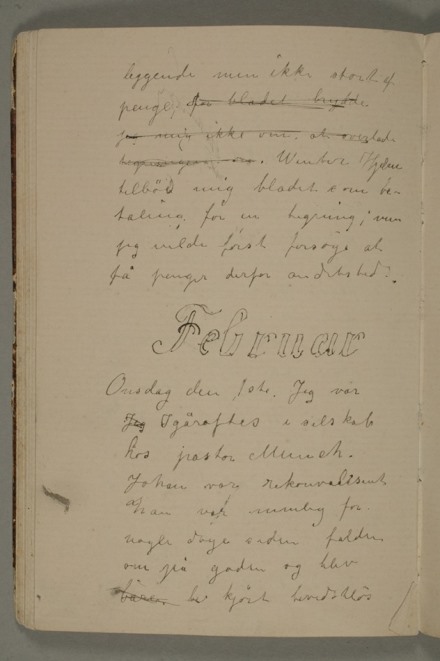 leggende men ikke stort af
penge, for bladet brydde
jeg mig ikke om, at
tegningen. Winter Hjelm
tilbød mig bladet som be-
taling for en tegning; men
jeg vilde først forsøge at
få penger derfor andetsted.
Februar
Onsdag den 1ste. Jeg var
Jeg Igåraftes i selskab
hos pastor Munch.
Johan var rekonvalesent
han var nemlig for
nogle dage siden falden
om på gaden og blev
kjørt bevidstløs